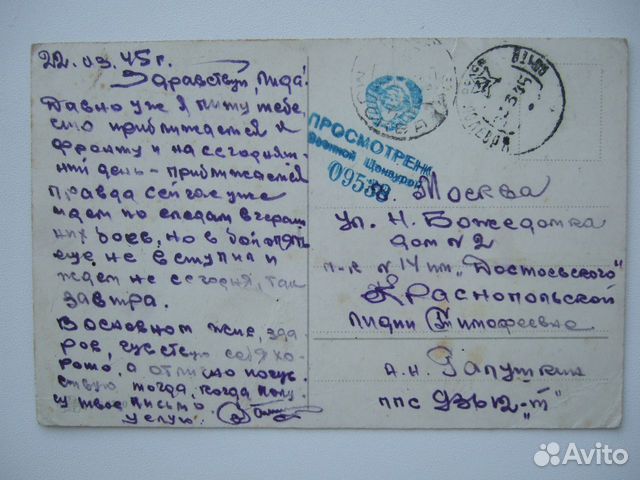 22.03.45 г.
Здравствуй, Лида!
Давно уже я пишу тебе,
что приближаемся к
фронту и на сегодняш-
ний день – приближаемся
правда сейчас уже
идем по следам вчераш
них боев, но в бой опять
еще не вступил и
ждем не сегодня, так
завтра.
В основном жив, здо
ров, чувствую себя хо-
рошо, а отлично почув
ствую тогда, когда полу
чу твое письмо
Целую.
ПРОСМОТРЕНО
Военной Цензурой
09538
г. Москва
ул. Н. Божедомка
дом №2
п-к №14 им. „Достоевского"
Краснопольской
Лидии Тимофеевне
А.Н. Лапушкин
ппс 43512-„т"
Avito